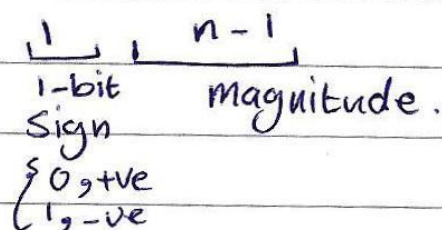 1 n-1
1-bit magnitude.
Sign
{ 0, +ve
1, -ve